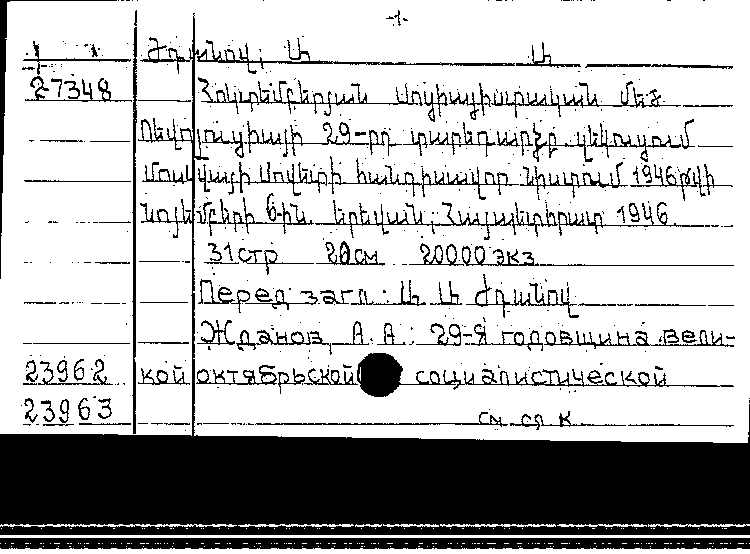 -1-
Ժդանով, Ա Ա
27348 Հոկտեմբերյան Սոցիալիստական Մեծ
Ռևոլուցիայի 29-րդ տարեդարձը. զեկուցում
Մոսկվայի Սովետի հանդիսավոր նիստում 1946 թվի
նոյեմբերի 6-ին. Երևան, Հայպետհրատ 1946
31 стр 20 см 20000 экз
Перед загл: Ա Ա Ժդանով
Жданов, А. А.: 29-я годовщина вели-
23962 кой октябрьской социалистической
23963 см сл к